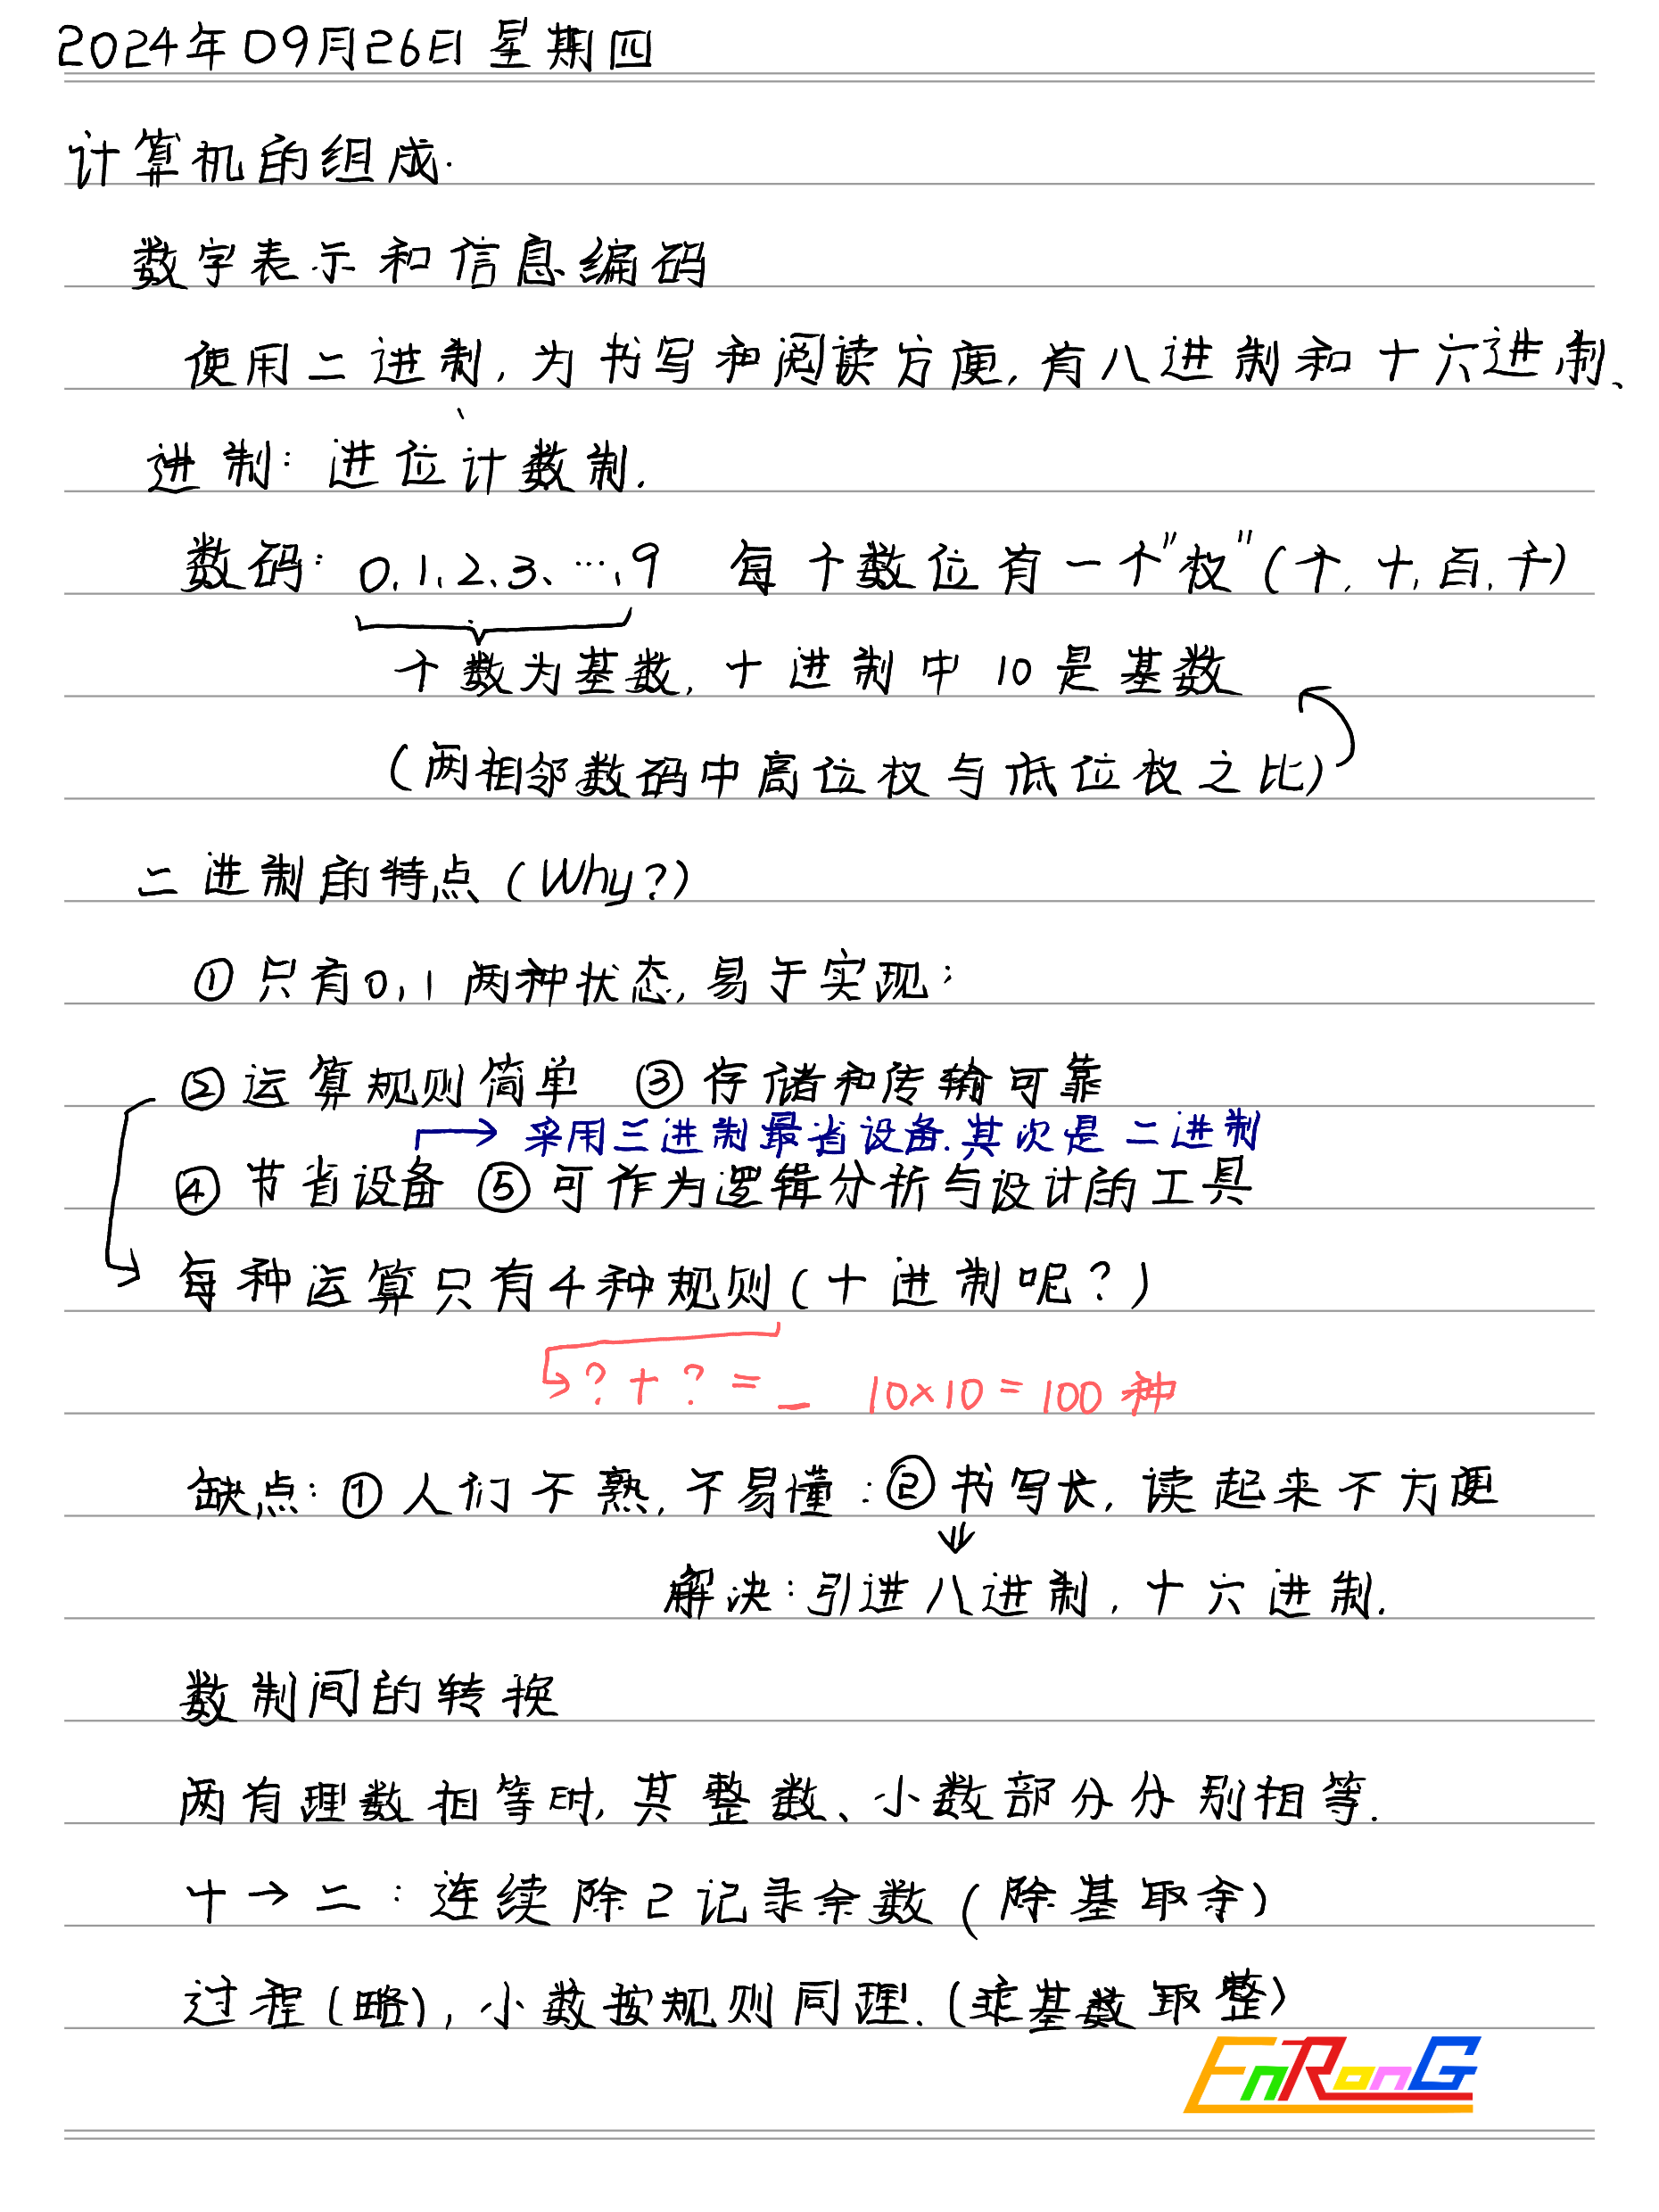 2024年09月26日 星期四
计算机的组成.
数字表示和信息编码
使用二进制,为书写和阅读方便,有八进制和十六进制、
进制: 进位计数制.
数码: 0、1、2、3、…、9 每个数位有一个"权"(个,十,百,千)
个数为基数,十进制中10是基数
(两相邻数码中高位权与低位权之比)
二进制的特点(Why?)
①只有0,1两种状态,易于实现;
②运算规则简单 ③存储和传输可靠
→采用三进制最省设备.其次是二进制
④节省设备 ⑤可作为逻辑分析与设计的工具
每种运算只有4种规则(十进制呢?)
?+?=_ 10×10=100种
缺点: ①人们不熟,不易懂: ②书写长,读起来不方便
解决:引进八进制,十六进制.
数制间的转换
两有理数相等时,其整数、小数部分分别相等.
十→二: 连续除2记录余数(除基取余)
过程(略),小数按规则同理.(乘基数取整)
EnRonG